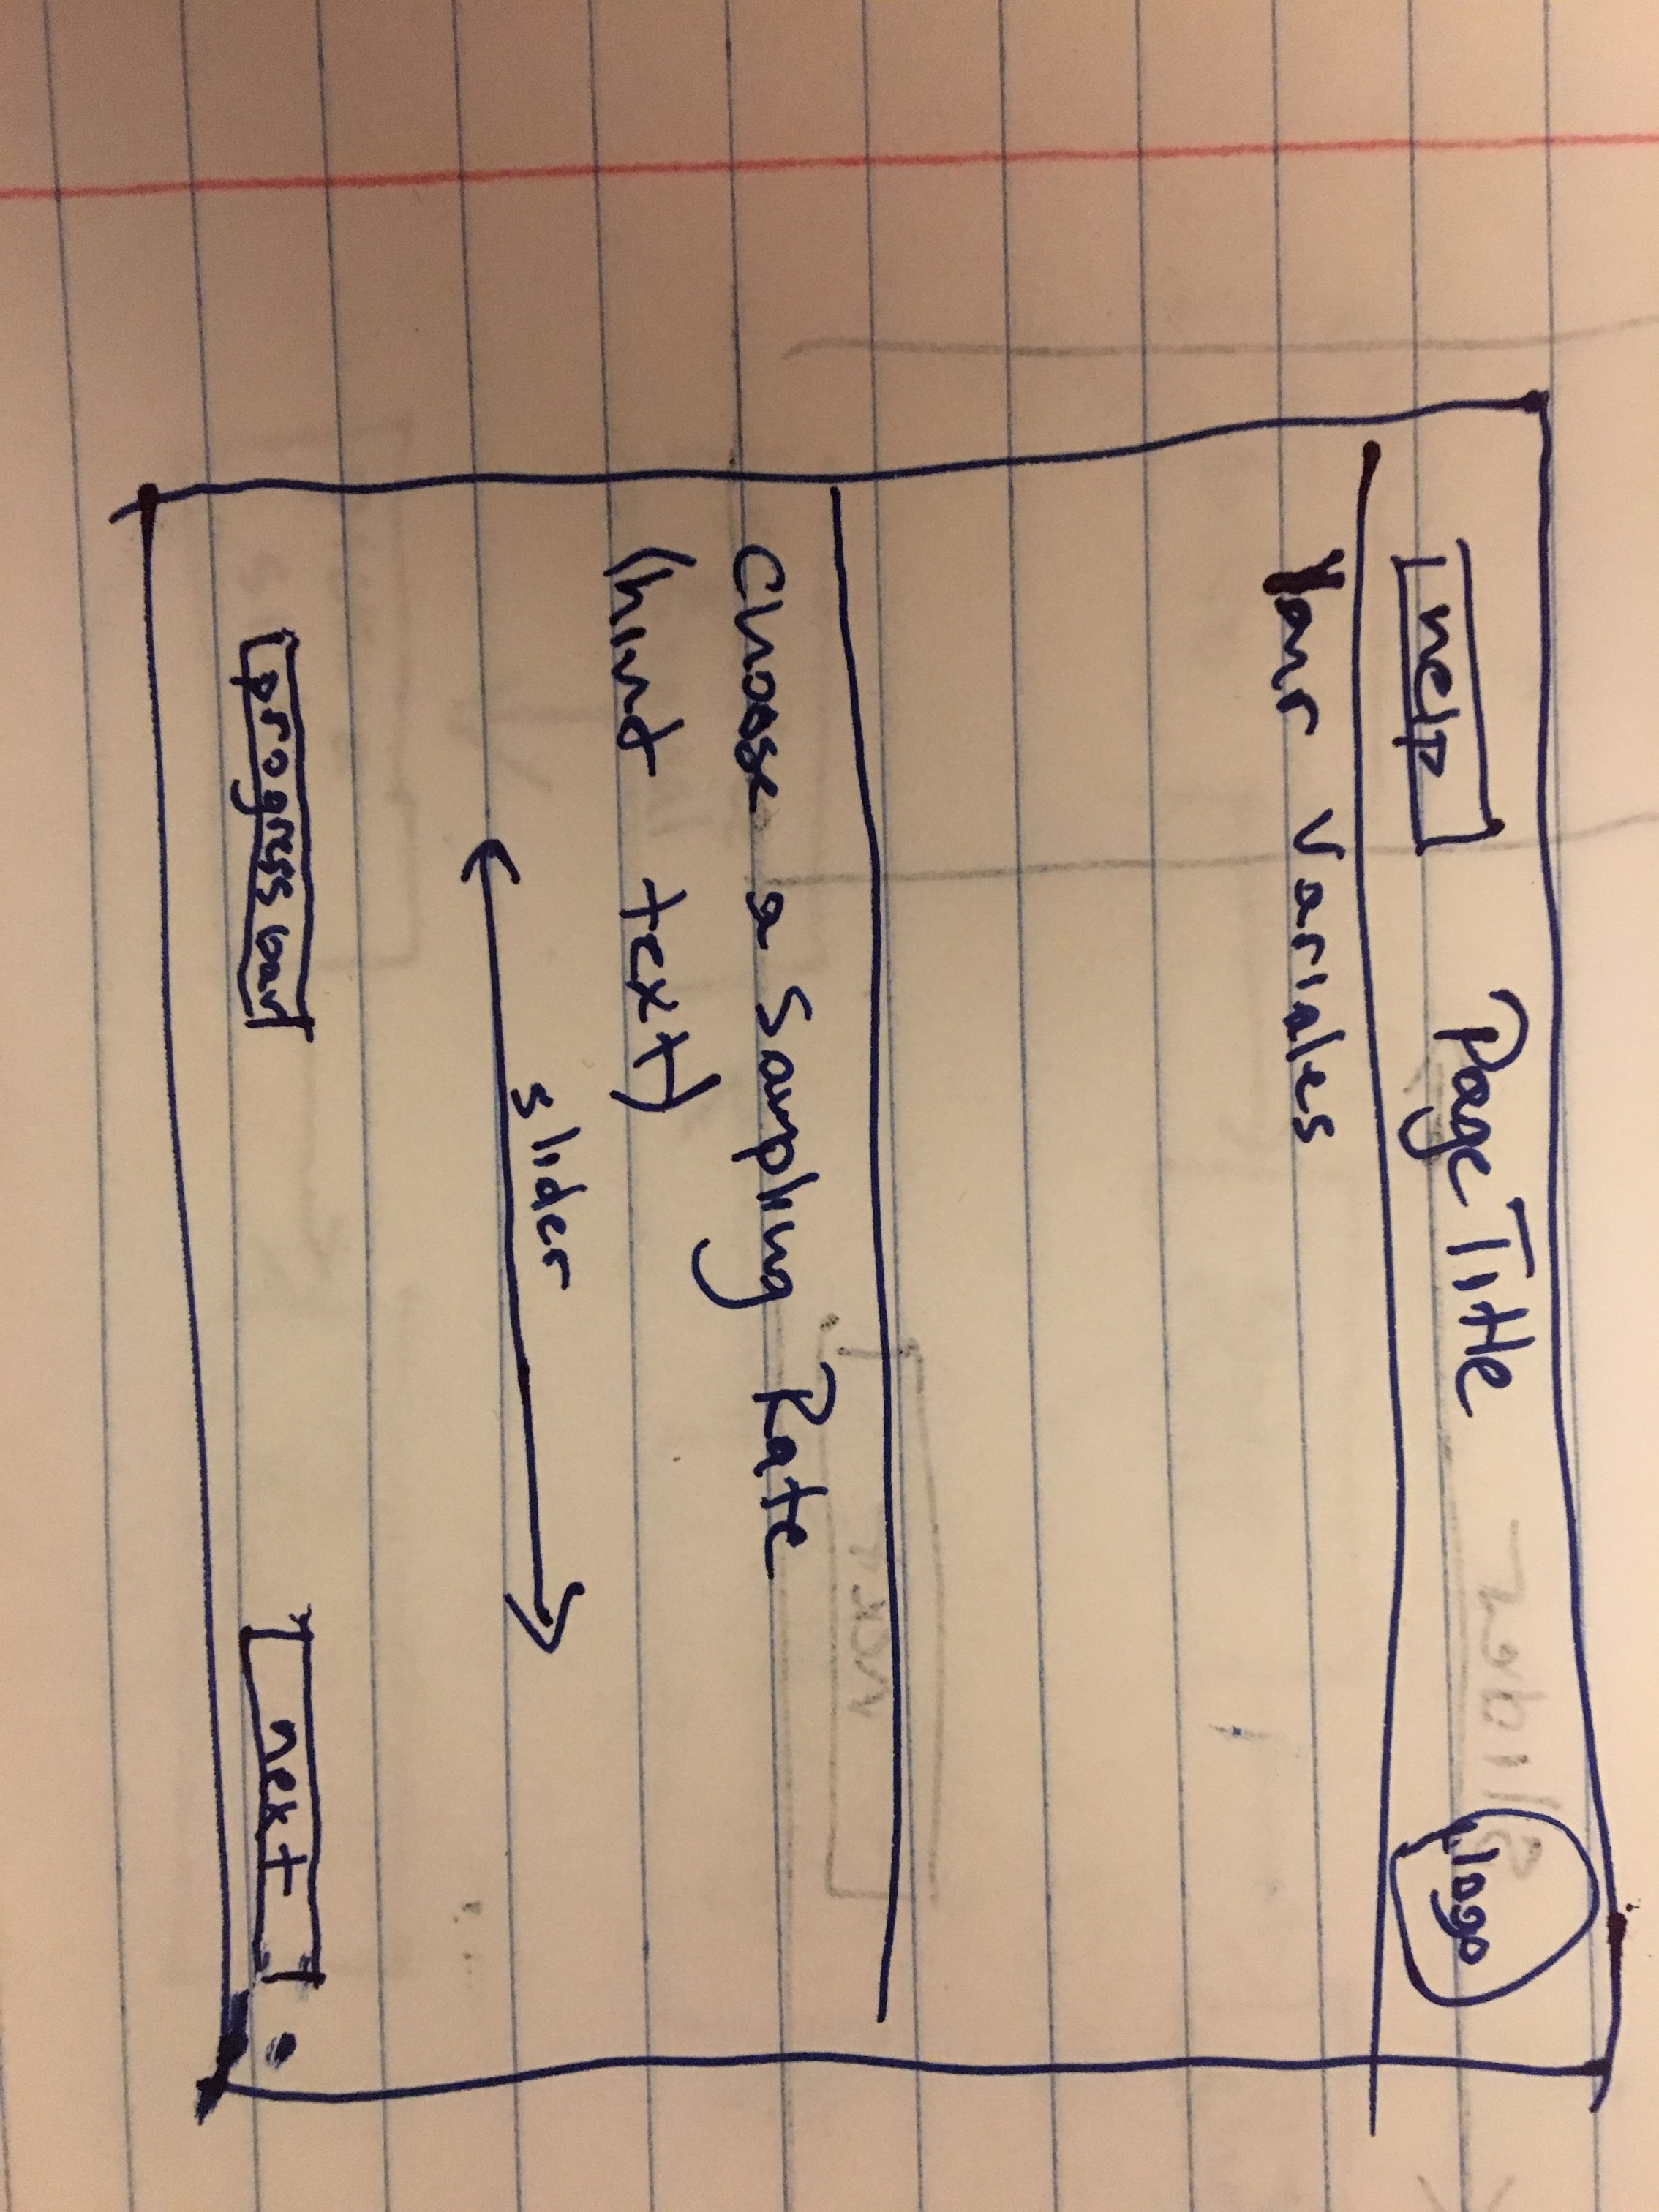 help Page Title logo
Your Variales
Choose a Sampling Rate
(hint text)
slider
progress bar next
next